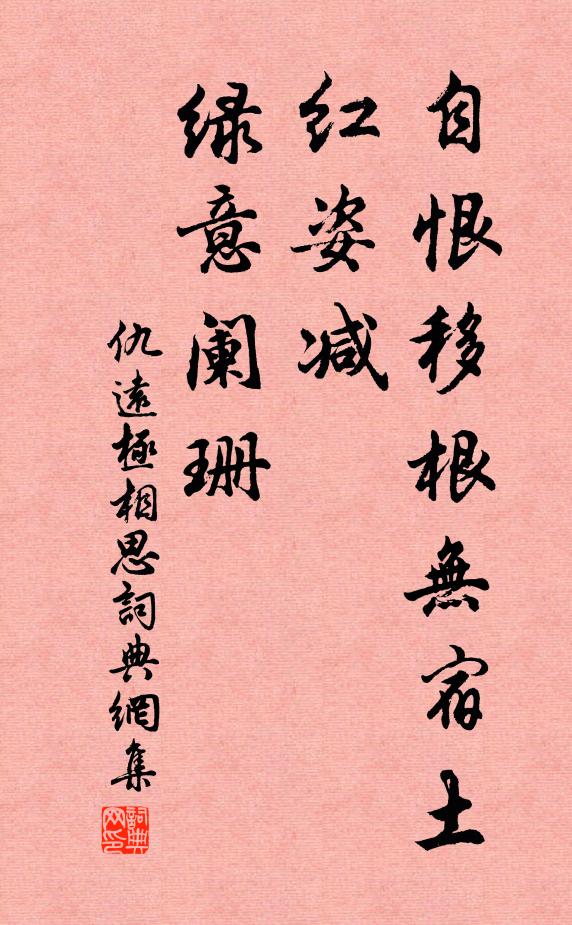 自恨移根無宿土
红姿减
緑意阑珊
仇遠極相思詞典網集
詞典网印